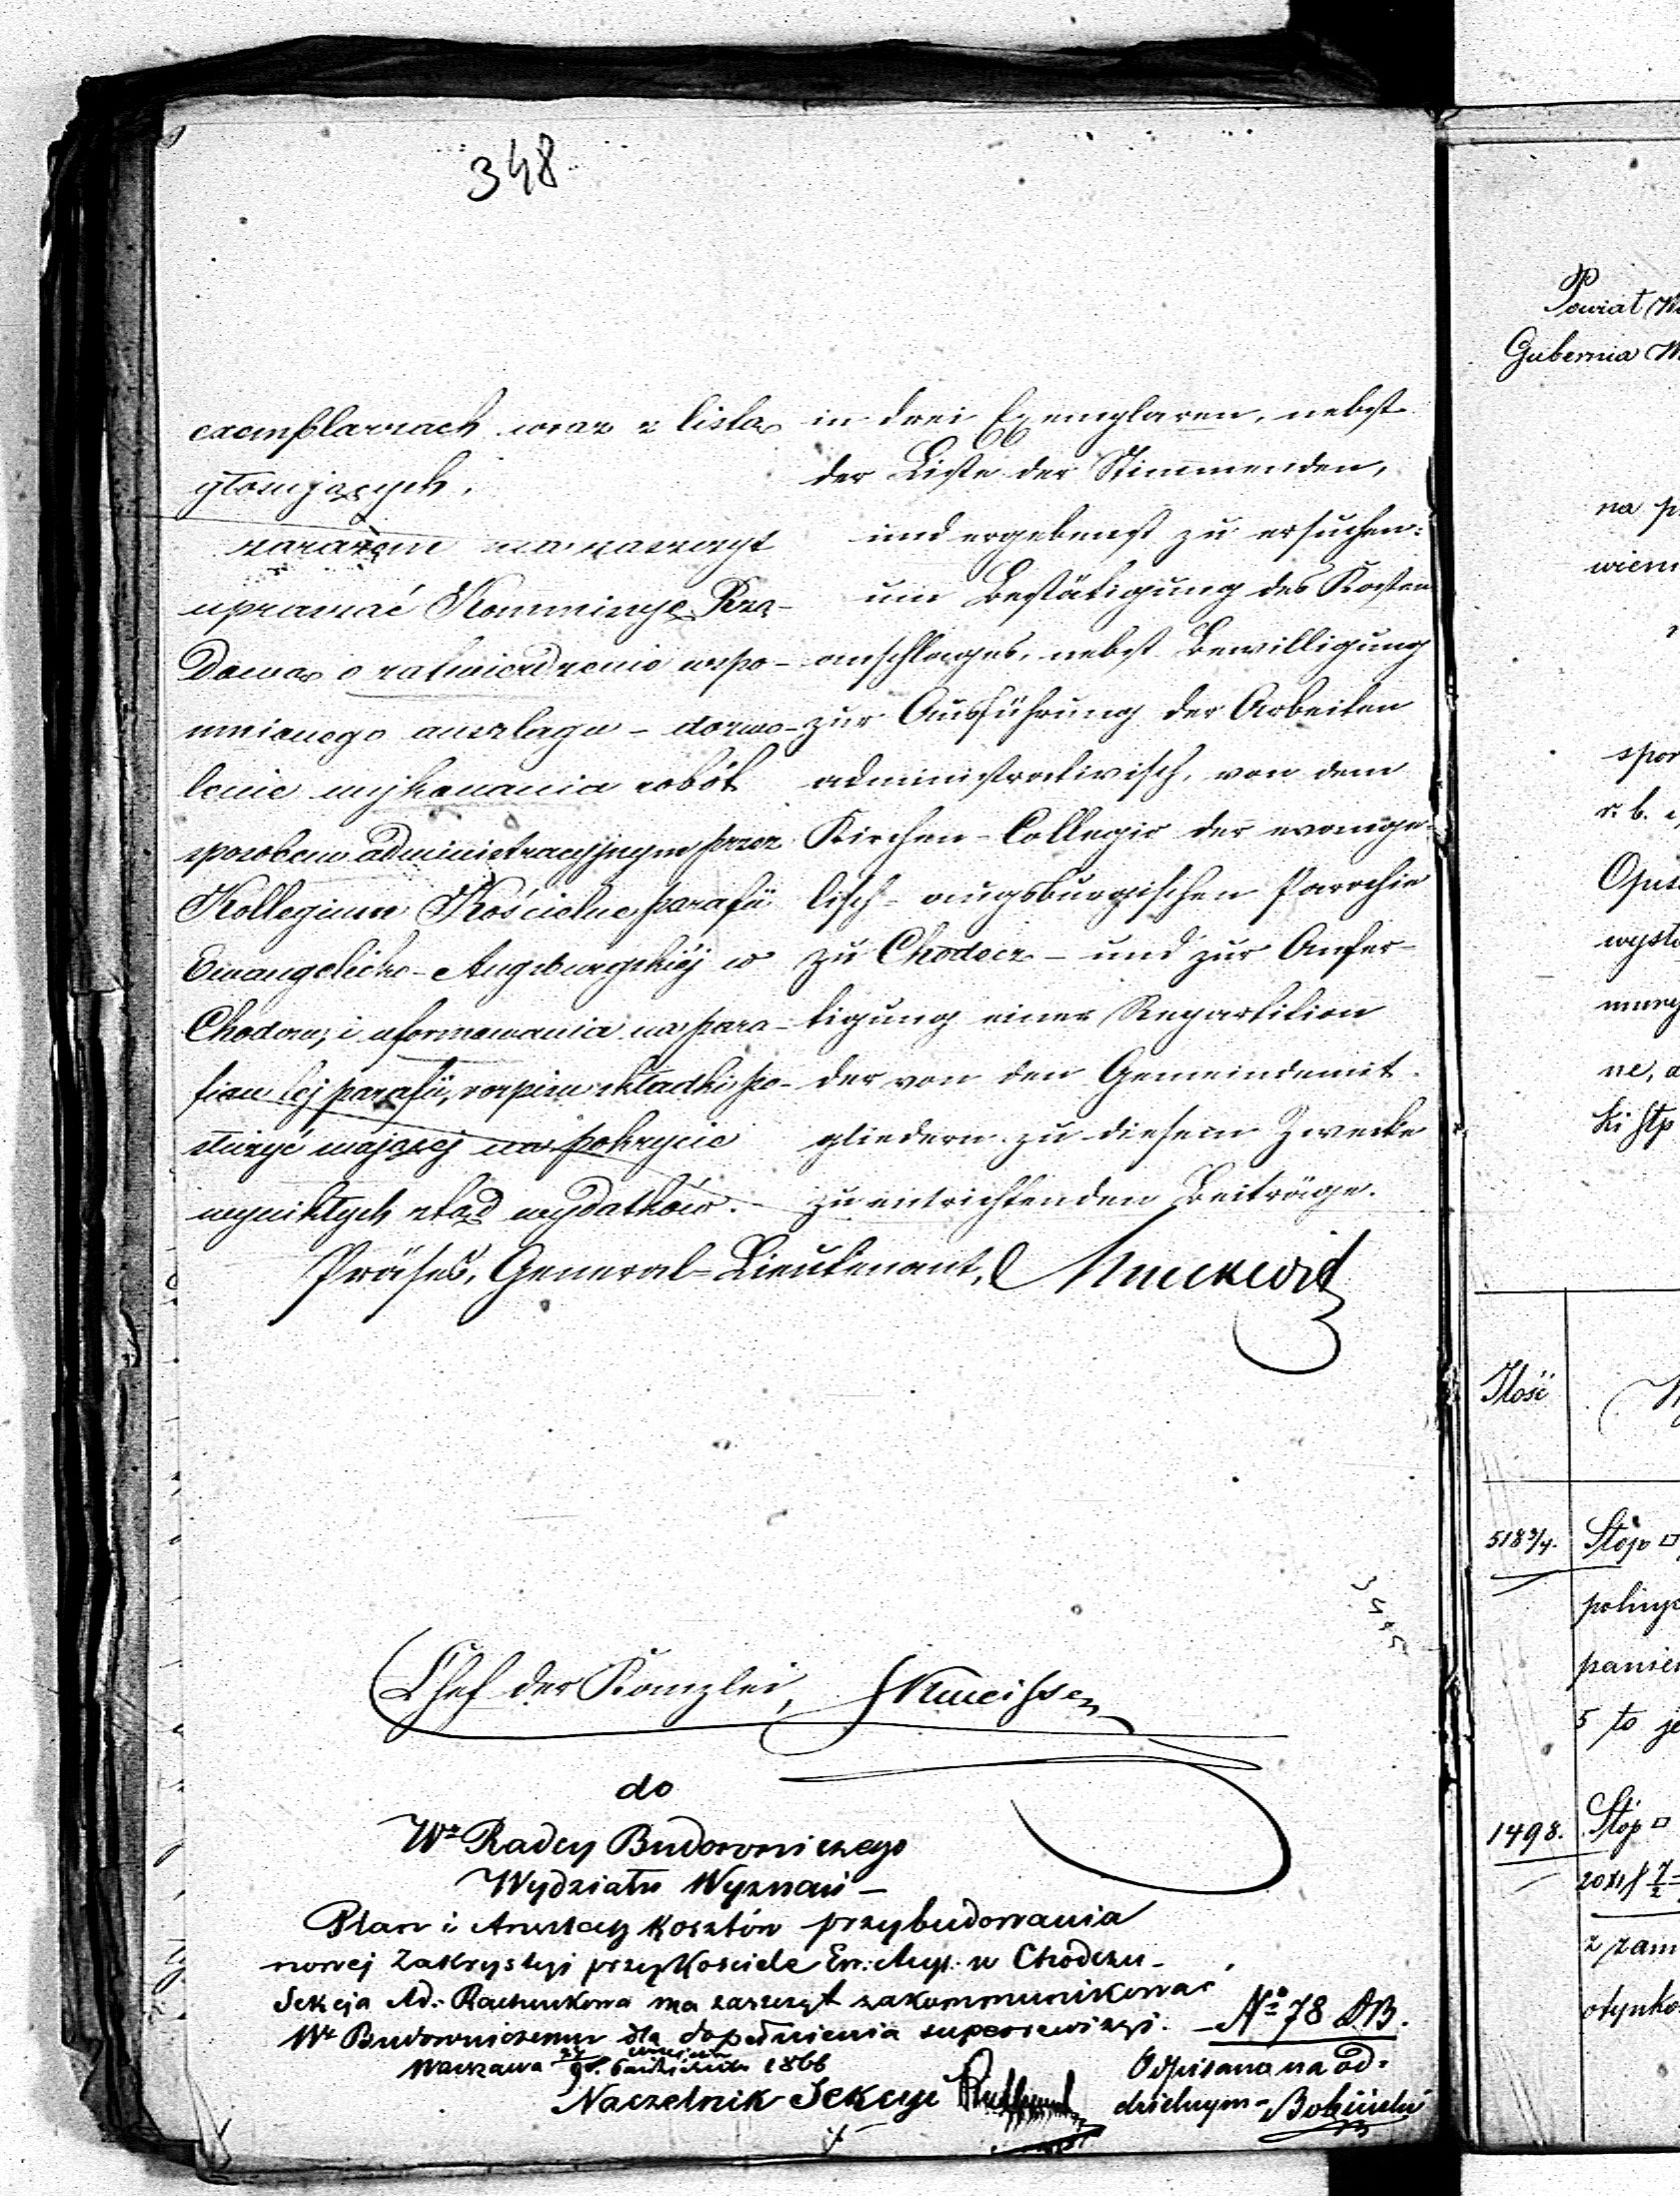 348
exemplarzach wraz z listą
głosujących.
zarazem ma zaszczyt
upraszać Kommissye Rzą-
dową o zatwierdzenie wspo-
mnionego anszlagu – dozwo-
lenie wykonania robót
sposobem administracyjnym przez
Kollegium Kościelne parafii
Ewangelicko-Augsburgskiéj w
Chodczu, i uformowania na para-
fian téj parafii, rozpisu składki po-
służyć mającej na pokrycie
wynikłych ztąd wydatków.
in drei Exemplaren, nebst
der Liste der Stimmenden,
und ergebenst zu ersuchen:
um Bestätigung des Kosten
anschlages, nebst Bewilligung
zur Ausführung der Arbeiten
administrativisch, von dem
Kirchen-Collegio der evange-
lisch-augsburgischen Parochie
zu Chodecz – und zur Anfer-
tigung einer Repartition
der von den Gemeindemit-
gliedern zu diesem Zwecke
zu entrichtenden Beiträge.
Präses, General-Lieutenant,
Chef der Kanzlei,
do
Wo Radcy Budowniczego
Wydziału Wyznań –
Plan i Anszlag kosztów przybudowania
nowej Zakrystyi przy Kościele Ew: Aug: w Chodczu –
Sekcja Ad: Rachunkowa ma zaszczyt zakommunikować
Wu Budowniczemu dla dopełnienia superrewizyi. –
Warszawa 1866
Naczelnik Sekcyi
No 78 DB.
Odpisano na od-
dzielnym –
Powiat
Gubernia
na p
wiem
spor
r. b.
wyst
ne, a
Ilość
518 3/4. Stóp □
5 to je
1498. Stóp □
z zam
otynko